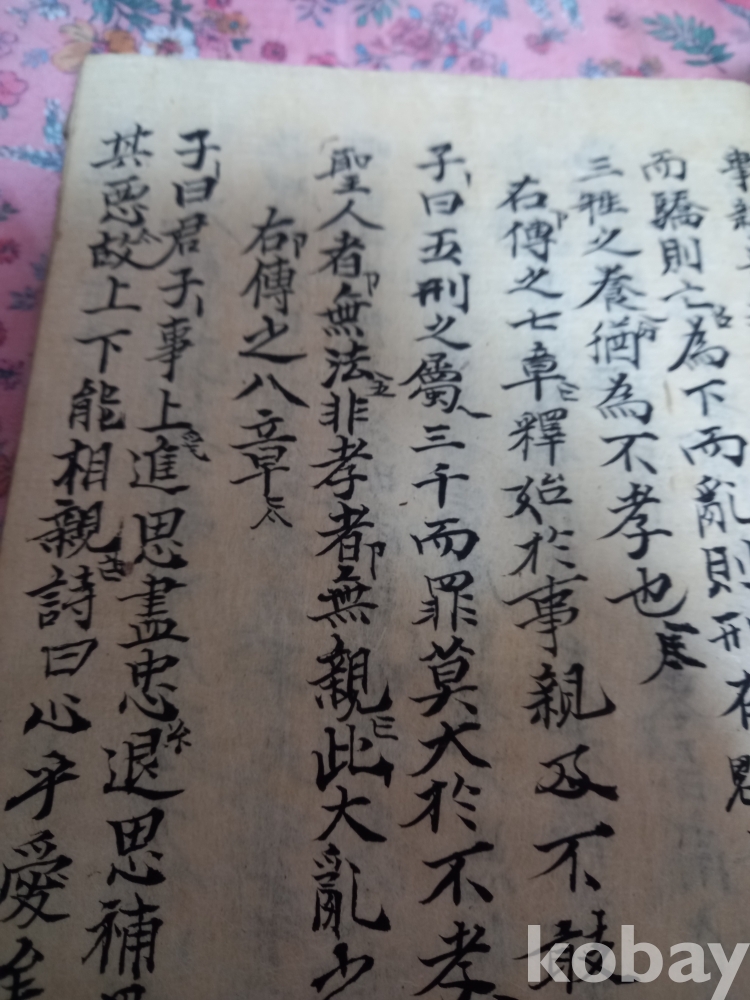 親
而驕則亡為下而亂則刑在
三牲之養猶為不孝也
右傳之七章釋始於事親及不敢
子曰五刑之屬三千而罪莫大於不孝
聖人者無法非孝者無親此大亂之
右傳之八章
子曰君子事上進思盡忠退思補
其惡故上下能相親詩曰心乎愛矣
kobay